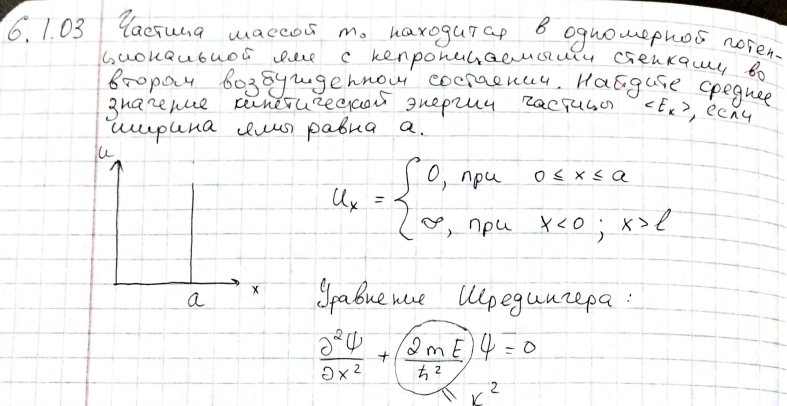 6.1.03 Частица массой m₀ находится в одномерной потен-
циональной яме с непроницаемыми стенками во
втором возбужденном состоянии. Найдите среднее
значение кинетической энергии частицы <Eк>, если
ширина ямы равна a.
u
Uₓ = { 0, при 0 ≤ x ≤ a
∞, при x < 0 ; x > l
a x
Уравнение Шредингера :
∂²Ψ/∂x² + (2mE/ħ²) Ψ = 0
= k²